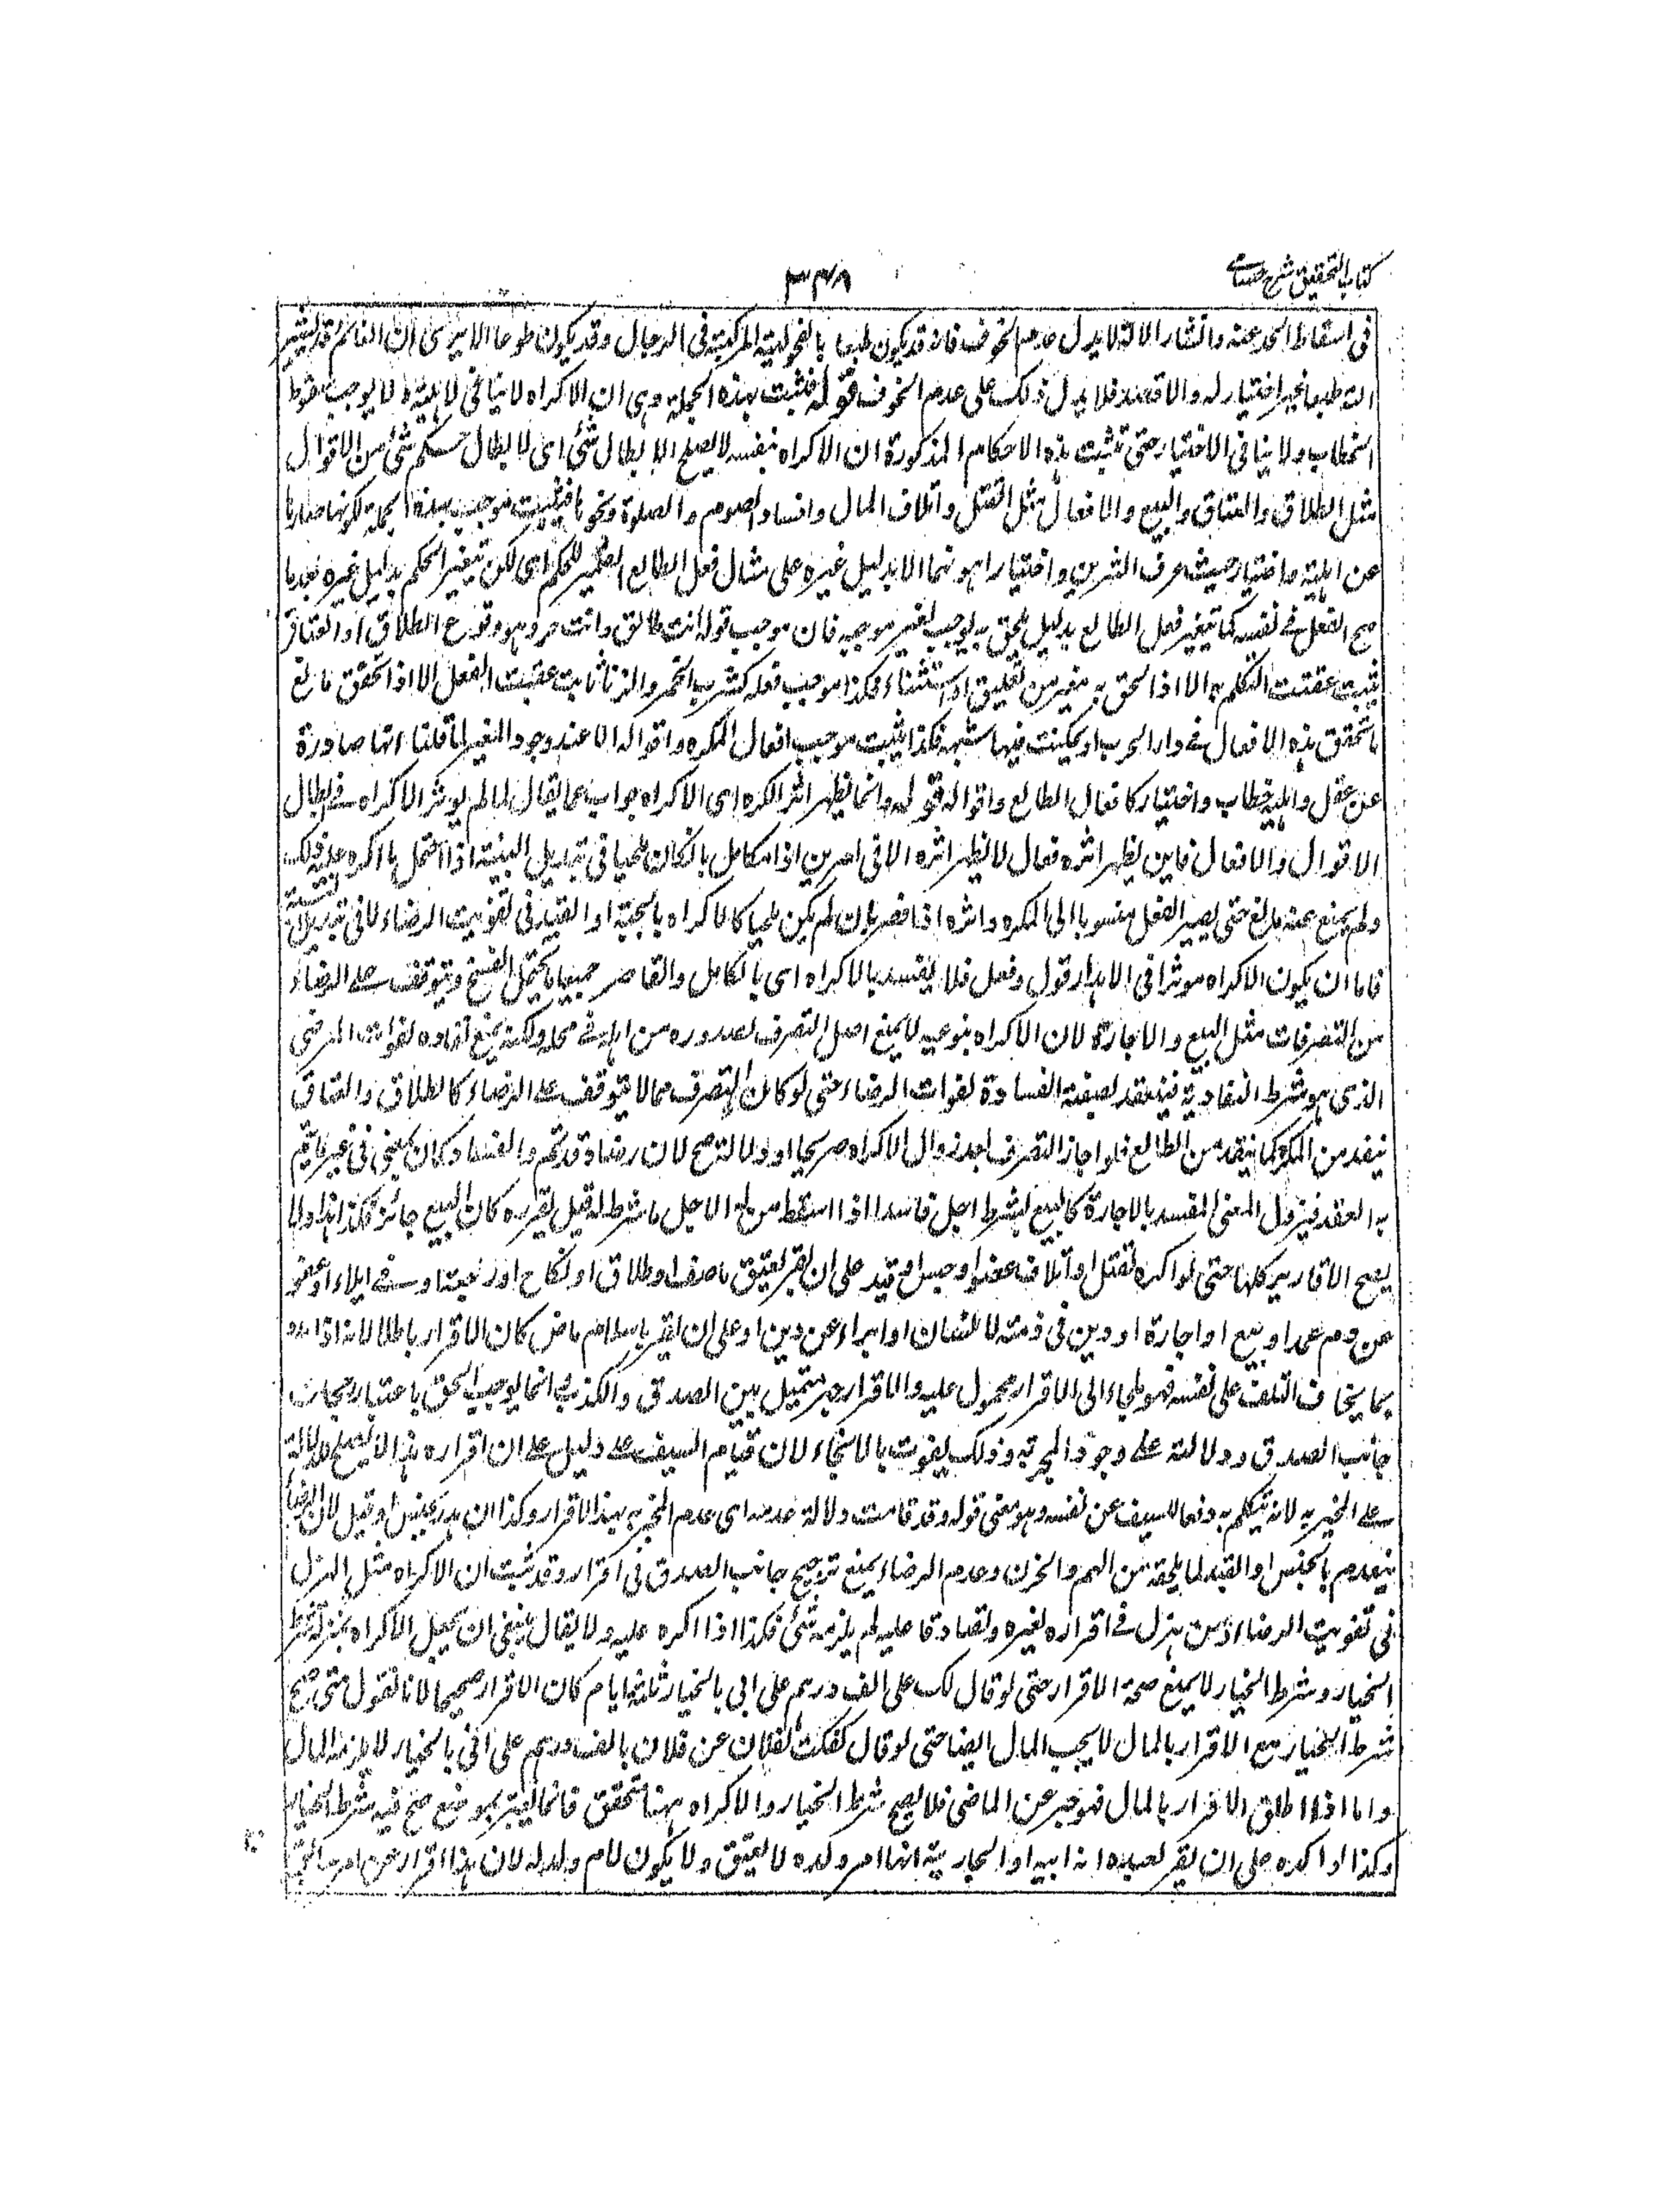 كتاب التحقيق شرح حسامى
٣٤٨
فى اسقاط الحد عنه وانتشار الالة لا يدل على عدم الخوف فانه قد يكون طبعا بالفحولية المركبة فى الرجال وقد يكون طوعا الا يرى ان النائم قد ينتشر
الته طبعا بغير اختيار له ولا قصد فلا يدل ذلك على عدم الخوف قوله فثبت بهذه الجملة وهى ان الاكراه لا ينافى الاهلية ولا يوجب سقوط
الخطاب ولا ينافى الاختيار حتى تثبت هذه الاحكام المذكورة ان الاكراه بنفسه لا يصلح لابطال شئ اى لابطال حكم شئ من الاقوال
مثل الطلاق والعتاق والبيع والافعال مثل القتل واتلاف المال وافساد الصوم والصلوة ونحوها فيثبت موجب هذه الجملة لكونها صادرة
عن اهلية واختيار حيث عرف الشرين واختيار اهونهما الا بدليل غيره على مثال فعل الطائع اى لكن تيغير الحكم بدليل غيره بعدما
صح الفعل فى نفسه كما يتغير فعل الطائع بدليل يلحق به يوجب تغير موجبه فان موجب قوله انت طالق وانت حر وهو وقوع الطلاق او العتاق
يثبت عقيب التكلم به الا اذا لحق به مغير من تعليق او استثناء فكذا موجب فعله كشرب الخمر والزنا ثابت عقيب الفعل الا اذا تحقق مانع
بان تحقق هذه الافعال فى دار الحرب او تمكنت فيها شبهة فكذا يثبت موجب افعال المكره واقواله الا عند وجود المغير لما قلنا انها صادرة
عن عقل واهلية خطاب واختيار كافعال الطائع واقواله قوله وانما يظهر اثر الكره اى الاكراه جواب عما يقال لما لم يوثر الاكراه فى ابطال
الاقوال والافعال فاين يظهر اثره فقال لا يظهر اثره الا فى امرين اذا تكامل بان كان ملجيا فى تبديل النسبة اذا احتمل ما اكره عليه ذلك
ولم يمنع عنه مانع حتى يصير الفعل منسوبا الى المكره واثره اذا قصر بان لم يكن ملجيا كالاكراه بالحبس او القيد فى تفويت الرضاء لا فى تبديل النسبة
فاما ان يكون الاكراه موثرا فى اهدار قول وفعل فلا فيفسد بالاكراه اى بالكامل والقاصر جميعا ما يحتمل الفسخ ويتوقف على الرضاء
من التصرفات مثل البيع والاجارة لان الاكراه بنوعيه لا يمنع اصل التصرف لصدوره من اهله فى محله ولكنه يمنع نفاذه لفوات الرضى
الذى هو شرط النفاذ به فينعقد بصفة الفساد لفوات الرضاء حتى لو كان التصرف مما لا يتوقف على الرضاء كالطلاق والعتاق
ينفد من المكره كما ينفد من الطائع فلو اجاز التصرف بعد زوال الاكراه صريحا او دلالة صح لان رضاه قد تم والفساد كان لمعنى فى غير ما يتم
به العقد فيزول المعنى المفسد بالاجارة كالبيع بشرط اجل فاسد اذا اسقط من له الاجل ما شرط له قبل تقرره كان البيع جائزا فكذا هذا ولا
يصح الاقارير كلها حتى لو اكره بقتل او اتلاف عضو او حبس او قيد على ان يقر بعتق ماض او طلاق او نكاح او رجعة او فى ايلاء او عفو
عن دم عمد او بيع او اجارة او دين فى ذمته لانسان او ابراء عن دين او على ان يقر باسلام ماض كان الاقرار باطلا لانه اذا هدد
بما يخاف التلف على نفسه فهو ملجاء الى الاقرار محمول عليه والاقرار خبر متميل بين الصدق والكذب انما يوجب الحق باعتبار رجحان
جانب الصدق ودلالته على وجود المخبر به وذلك يفوت بالالجاء لان قيام السيف على دليل على ان اقراره هذا لا يصلح للدلالة
على المخبر به لانه يتكلم به دفعا للسيف عن نفسه وهو معنى قوله وقد قامت دلالة عدمه اى عدم المخبر به بهذا الاقرار وكذا ان هدد بحبس او قيد لان الرضاء
ينعدم بالحبس او القيد لما يلحقه من الهم والحزن وعدم الرضاء يمنع ترجيح جانب الصدق فى اقراره وقد ثبت ان الاكراه مثل الهزل
فى تفويت الرضاء ومن هزل فى اقراره لغيره وتصادقا عليه لم يلزمه شئ فكذا اذا اكره عليه ولا يقال ينبغى ان يجعل الاكراه بمنزلة شرط
الخيار وشرط الخيار لا يمنع صحة الاقرار حتى لو قال لك على الف درهم على انى بالخيار ثلاثة ايام كان الاقرار صحيحا لانا نقول متى صح
شرط الخيار مع الاقرار بالمال لا يجب المال ايضا حتى لو قال كفلت لفلان عن فلان بالف درهم على انى بالخيار لا يلزمه المال
واما اذا اطلق الاقرار بالمال فهو خبر عن الماضى فلا يصح شرط الخيار والاكراه ههنا متحقق فانما يعتبر بموضع صح فيه شرط الخيار
وكذا لو اكره على ان يقر لعبده انه ابنه او لجاريته انها ام ولده لا يعتق ولا يكون لام ولد له لان هذا اقرار عن امر سابق